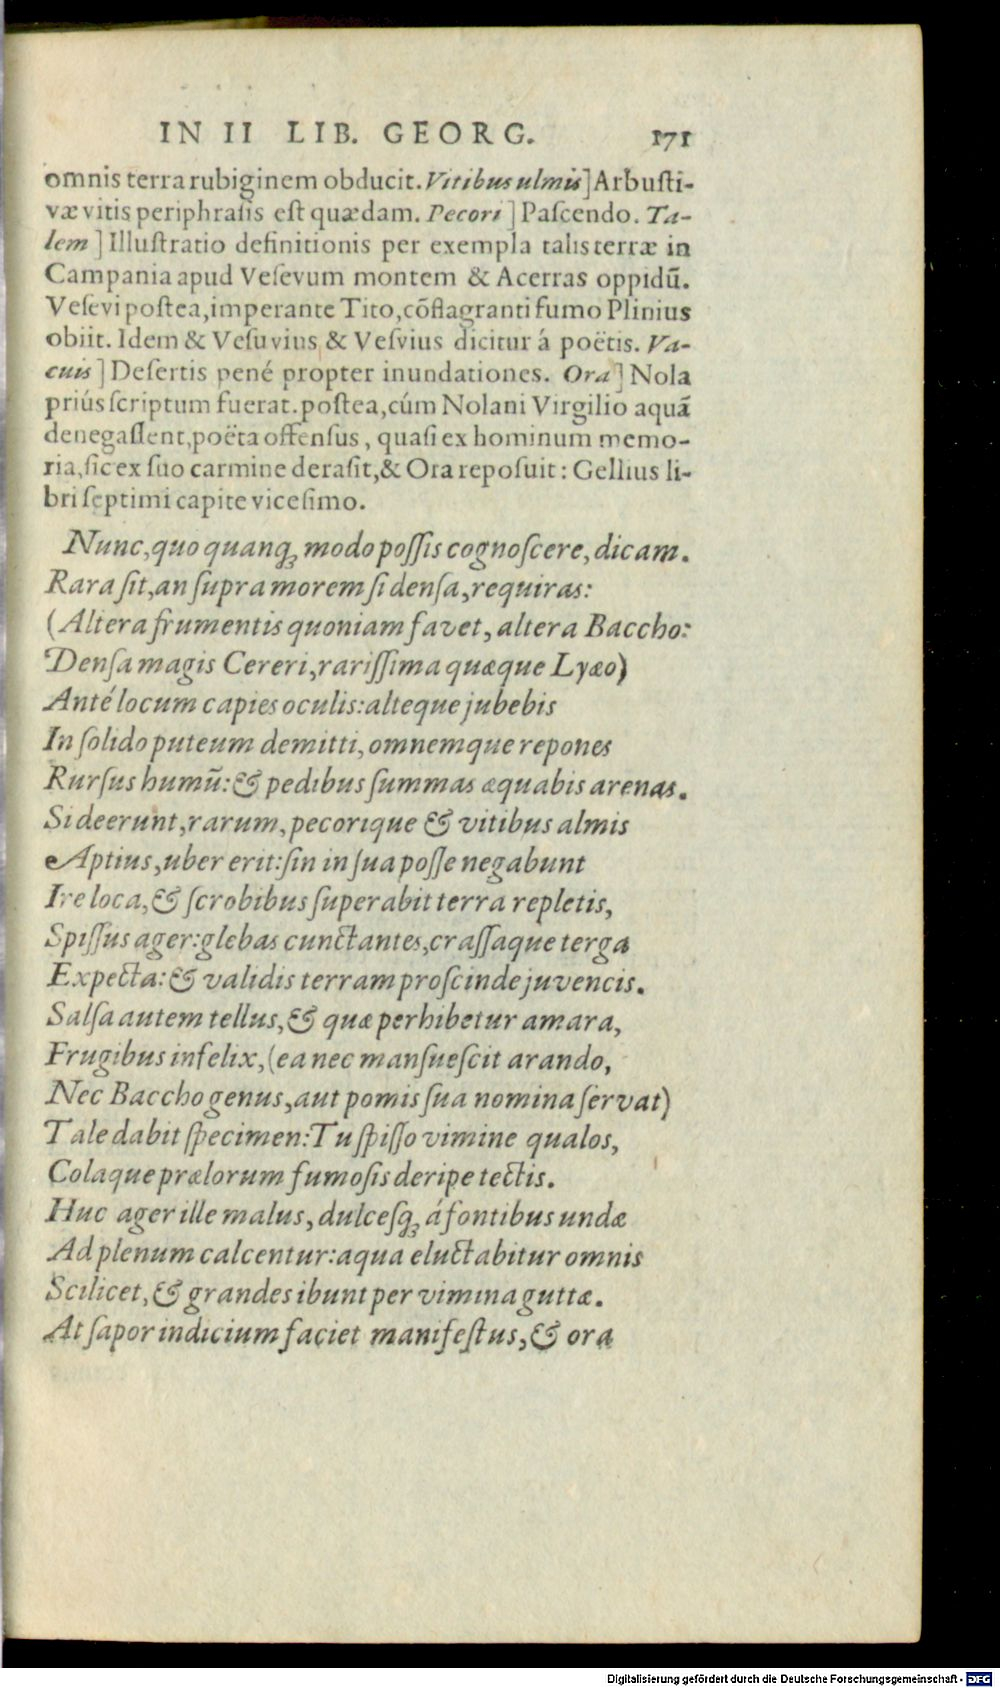 IN II LIB. GEORG. 171
omnis terra rubiginem obducit. Vitibus ulmis] Arbusti-
væ vitis periphrasis est quædam. Pecori] Pascendo. Ta-
lem] Illustratio definitionis per exempla talis terræ in
Campania apud Vesevum montem & Acerras oppidũ.
Vesevi postea, imperante Tito, cõflagranti fumo Plinius
obiit. Idem & Vesuvius & Vesvius dicitur á poëtis. Va-
cuis] Desertis pené propter inundationes. Ora] Nola
priús scriptum fuerat. postea, cúm Nolani Virgilio aquã
denegassent, poëta offensus, quasi ex hominum memo-
ria, sic ex suo carmine derasit, & Ora reposuit: Gellius li-
bri septimi capite vicesimo.
Nunc, quo quanq; modo possis cognoscere, dicam.
Rara sit, an supra morem si densa, requiras:
(Altera frumentis quoniam favet, altera Baccho:
Densa magis Cereri, rarissima quæque Lyæo)
Anté locum capies oculis: alteque jubebis
In solido puteum demitti, omnemque repones
Rursus humũ: & pedibus summas æquabis arenas.
Si deerunt, rarum, pecorique & vitibus almis
Aptius, uber erit: sin in sua posse negabunt
Ire loca, & scrobibus superabit terra repletis,
Spissus ager: glebas cunctantes, crassaque terga
Expecta: & validis terram proscinde juvencis.
Salsa autem tellus, & quæ perhibetur amara,
Frugibus infelix, (ea nec mansuescit arando,
Nec Baccho genus, aut pomis sua nomina servat)
Tale dabit specimen: Tu spisso vimine qualos,
Colaque prælorum fumosis deripe tectis.
Huc ager ille malus, dulcesq; á fontibus undæ
Ad plenum calcentur: aqua eluctabitur omnis
Scilicet, & grandes ibunt per vimina guttæ.
At sapor indicium faciet manifestus, & ora
Digitalisierung gefördert durch die Deutsche Forschungsgemeinschaft - DFG